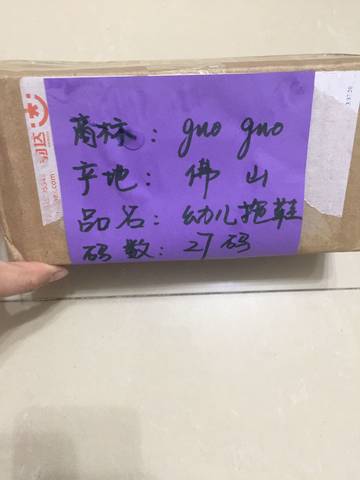 商标：guo guo
产地：佛山
品名：幼儿拖鞋
码数：27码